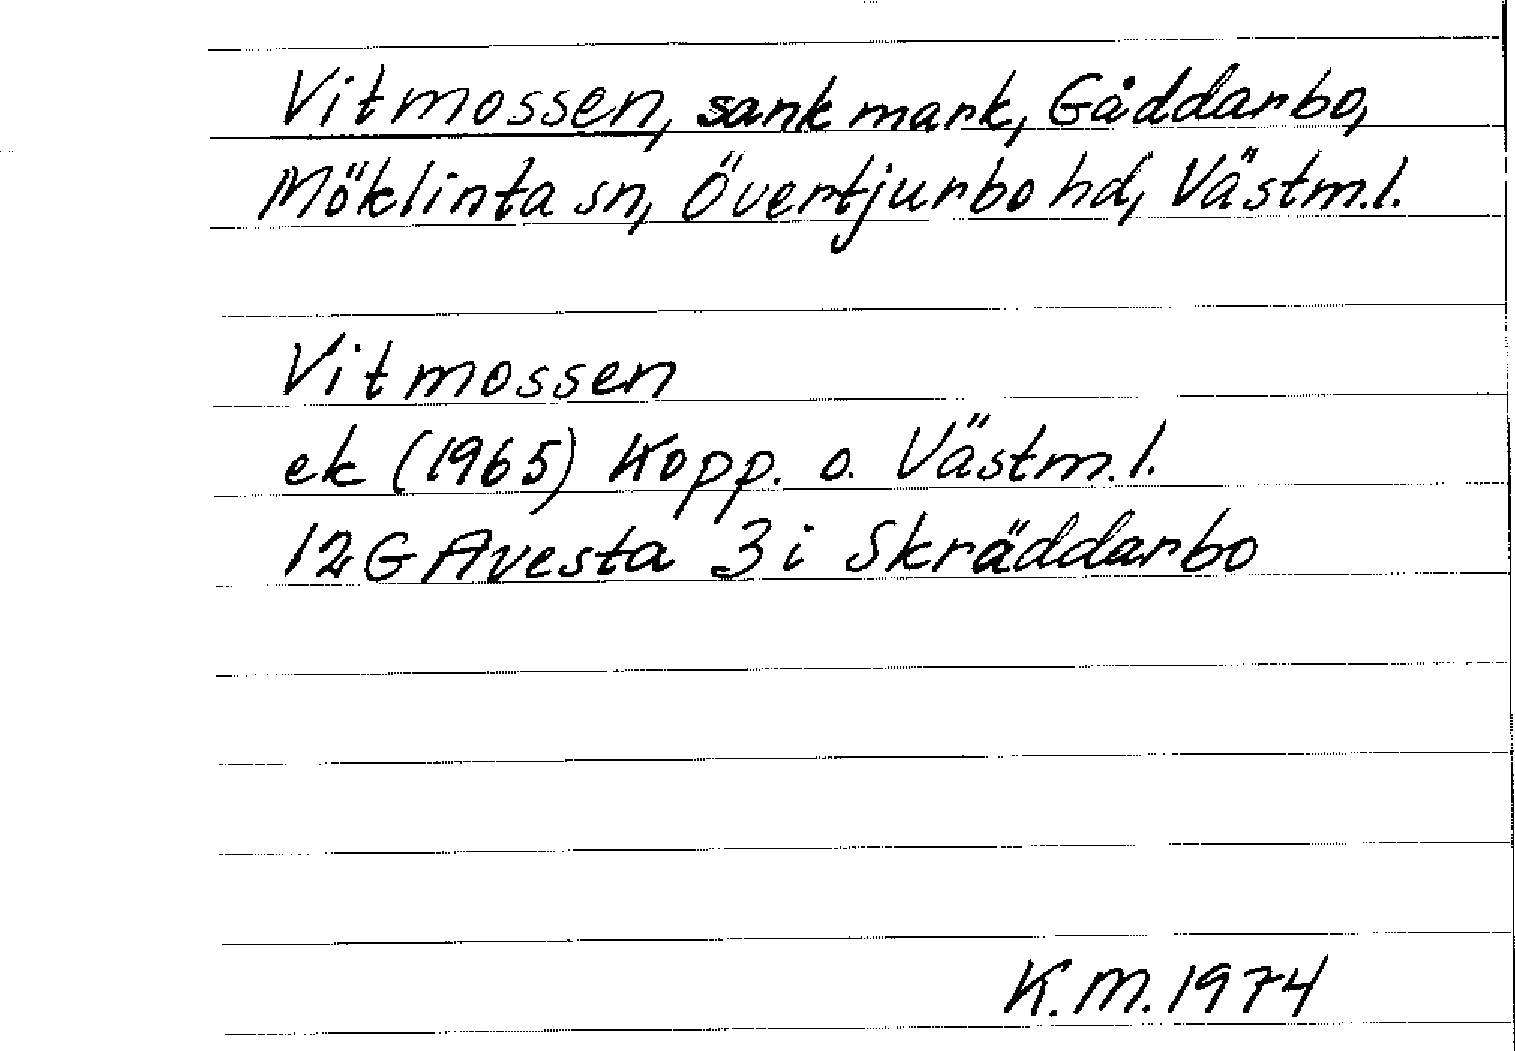 Vitmossen, sank mark, Gåddarbo,
Möklinta sn, Övertjurbo hd, Västm.l.
Vitmossen
ek (1965) Kopp. o. Västm.l.
12G Avesta 3i Skräddarbo
K.M. 1974